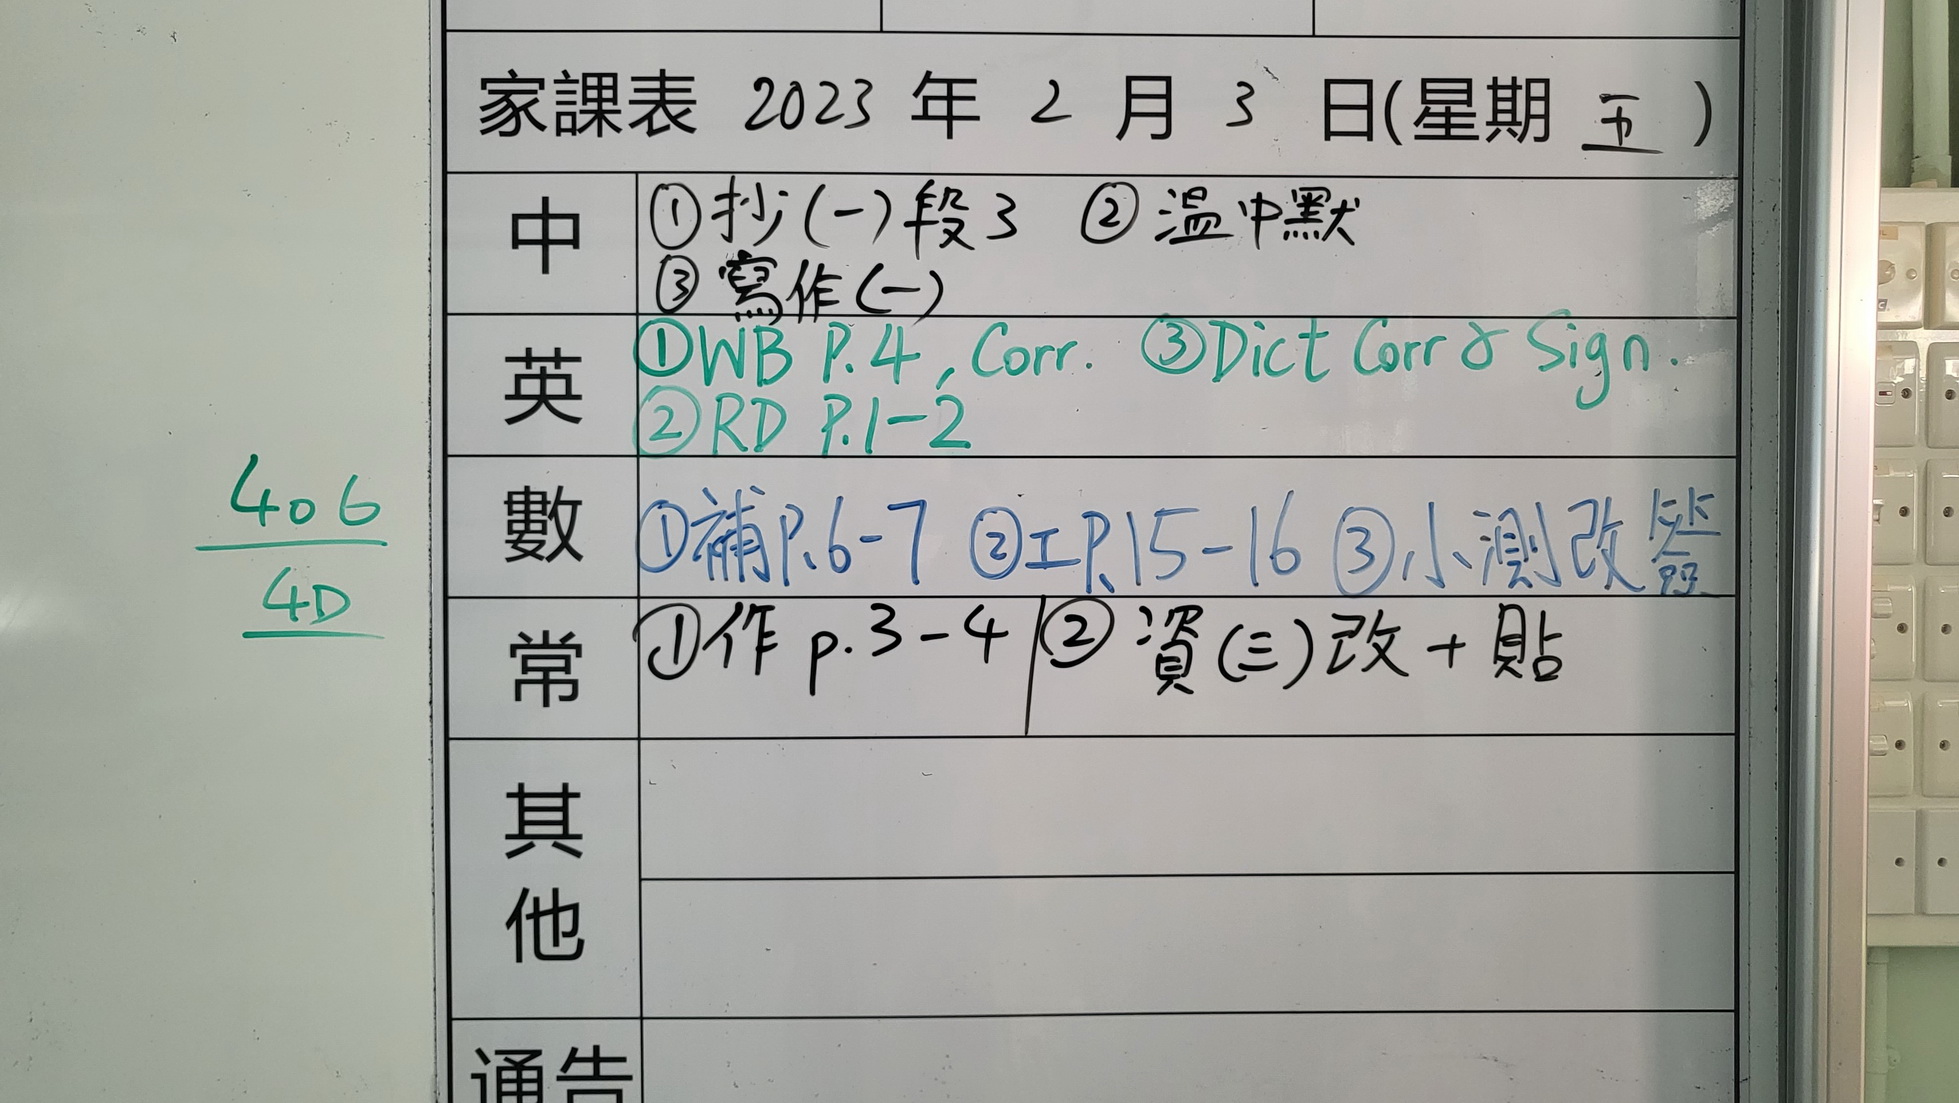 家課表 2023 年 2 月 3 日(星期 五 )
中
①抄(一)段3 ②溫中默
③寫作(一)
英
①WB P.4, Corr. ③Dict Corr & Sign.
②RD P.1-2
數
①補P.6-7 ②工P.15-16 ③小測改簽
常
①作 p.3-4 ②資(三)改+貼
其他
通告
406
4D